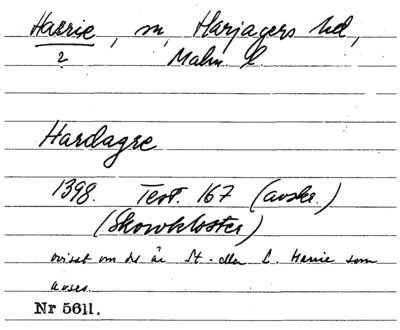 Harrie, sn, Harjagers hd,
? Malm. l.
Hardagre
1398. Test. 167 (avskr.)
(Skowkloster)
ovisst om det är St. eller L. Harrie som
avses.
Nr 5611.